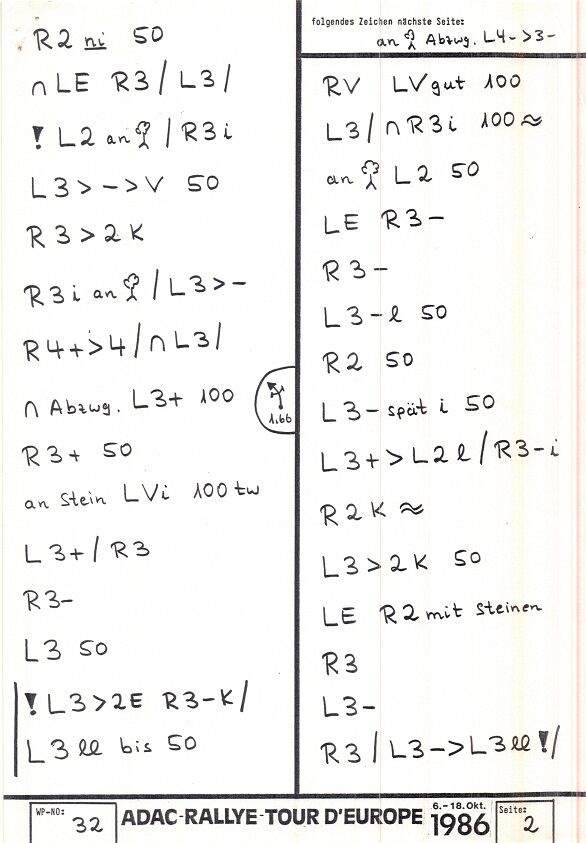 R2 ni 50
∩ LE R3/ L3/
! L2 an /R3i
L3>->V 50
R3>2K
R3i an /L3>-
R4+>4/∩L3/
∩ Abzwg. L3+ 100
R3+ 50
an Stein LVi 100 tw
L3+/R3
R3-
L3 50
! L3>2E R3-K/
L3 ll bis 50
1.66
folgendes Zeichen nächste Seite:
an Abzwg. L4->3-
RV LV gut 100
L3/∩R3i 100≈
an L2 50
LE R3-
R3-
L3-l 50
R2 50
L3- spät i 50
L3+>L2l/R3-i
R2K≈
L3>2K 50
LE R2 mit Steinen
R3
L3-
R3/L3->L3ll!/
WP-NO: 32
ADAC-RALLYE-TOUR D'EUROPE
6.-18.Okt.
1986
Seite: 2